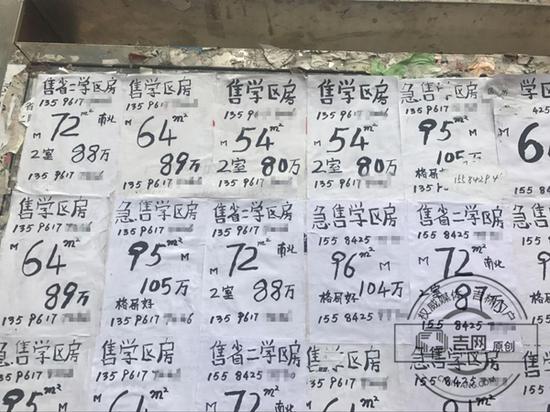 售省二学区房
135 9617
M 72 m² 南北
2室 88万
135 9617
售学区房
135 9617
M 64 m²
89万
135 9617
售学区房
135 9617
M 54 m²
2室 80万
135 9617
售学区房
135 9617
M 54 m²
2室 80万
135 9617
急售学区房
135 9617
M 95 m²
105万
格局好
155 8429
学区
425
M
售学区房
135 9617
M 64 m²
89万
135 9617
急售学区房
135 9617
M 95 m²
105万
格局好
135 9617
售省二学区房
135 9617
M 72 m² 南北
2室 88万
135 9617
急售学区房
155 8425
M 96 m²
格局好 104万
155 8425
售省二学区房
155 8425
M 72 m² 南北
2室
155 8425
售
155
M
急售学区房
135 9617
M 95 m²
售学区房
135 9617
m²
售省二学区房
135 9617
M 72 m² 南北
售学区房
135 9617
M m²
急售学区房
155 8425
m²
吉网 原创